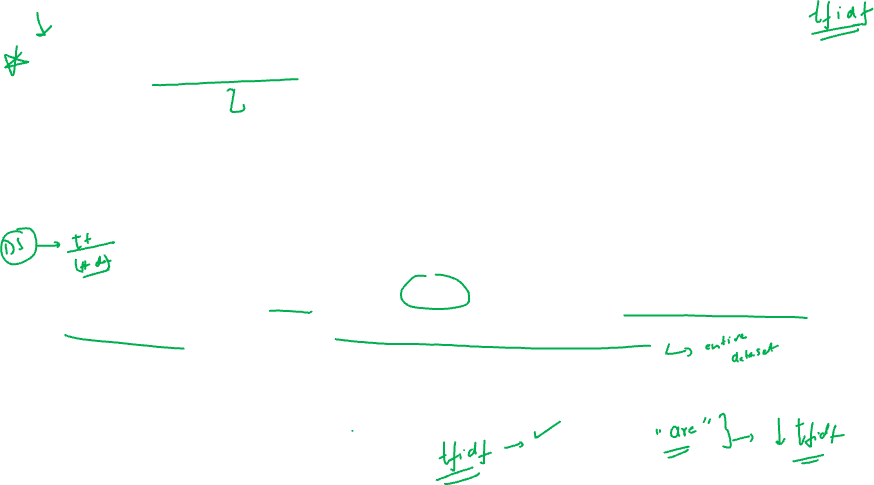 tfidf
2
DS → tf
1+df
↳ entire
dataset
tfidf → ✓
"are" } → ↓ tfidf